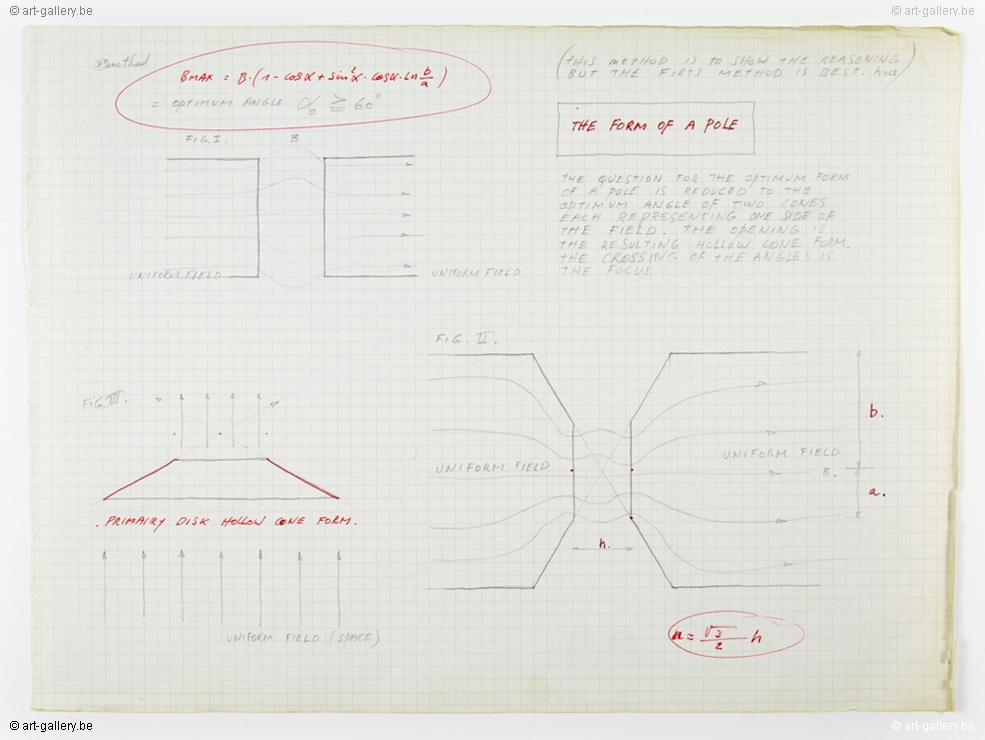 © art-gallery.be
© art-gallery.be
method
BMAX = B.(1 - cosα + sin²α. cosα. Ln b/a)
= OPTIMUM ANGLE α₀ ≧ 60°
(THIS METHOD IS TO SHOW THE REASONING
BUT THE FIRTS METHOD IS BEST. h=a)
THE FORM OF A POLE
FIG. I. B
UNIFORM FIELD UNIFORM FIELD
THE QUESTION FOR THE OPTIMUM FORM
OF A POLE IS REDUCED TO THE
OPTIMUM ANGLE OF TWO CONES
EACH REPRESENTING ONE SIDE OF
THE FIELD. THE OPENING IS
THE RESULTING HOLLOW CONE FORM.
THE CROSSING OF THE ANGLES IS
THE FOCUS.
FIG. II.
UNIFORM FIELD UNIFORM FIELD
b.
B.
a.
h.
a ≈ √3/2 h
FIG. III.
. PRIMAIRY DISK HOLLOW CONE FORM.
UNIFORM FIELD (SPACE)
© art-gallery.be
© art-gallery.be